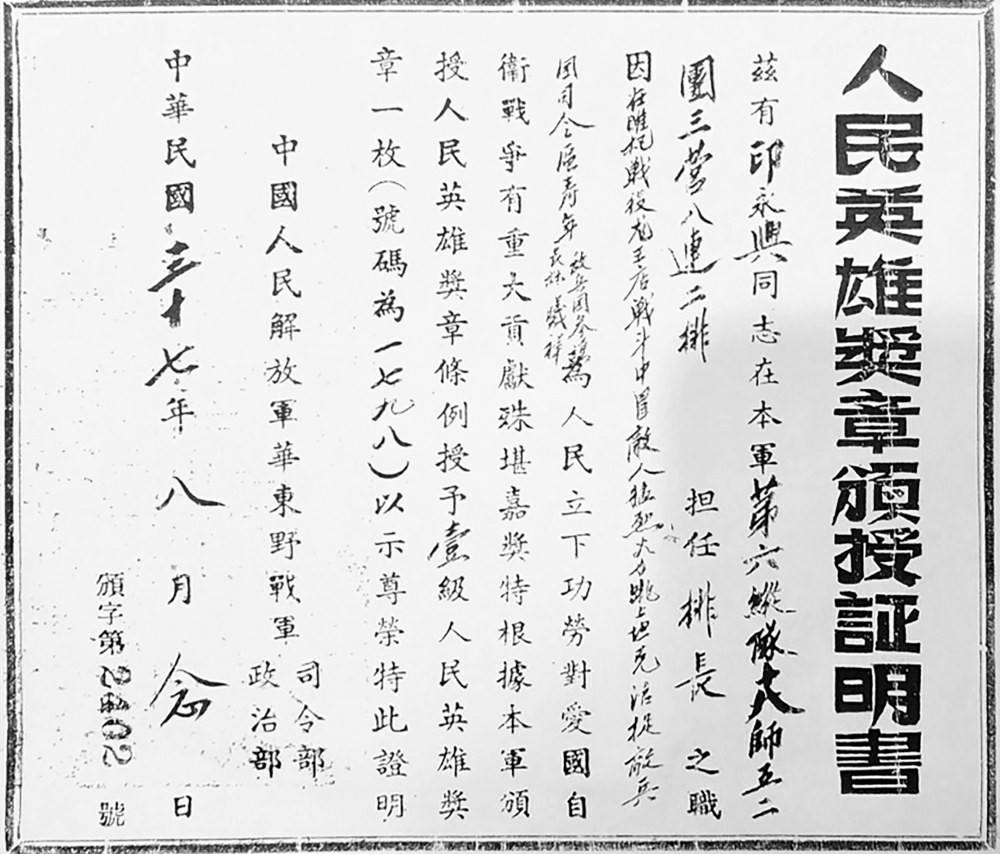 人民英雄獎章頒授証明書
茲有印永興同志在本軍第六縱隊十八師五二
團三營八連二排 担任排長之職
因在睢杞戰役龙王店戰斗中冒敵人猛烈火力跳上坦克活捉敵兵
团司令區寿年 為人民立下功勞對愛國自
衛戰爭有重大貢獻殊堪嘉獎特根據本軍頒
授人民英雄獎章條例授予壹級人民英雄獎
章一枚(號碼為一七九八)以示尊榮特此證明
中國人民解放軍華東野戰軍 司令部
政治部
中華民國三十七年八月念日
頒字第 號